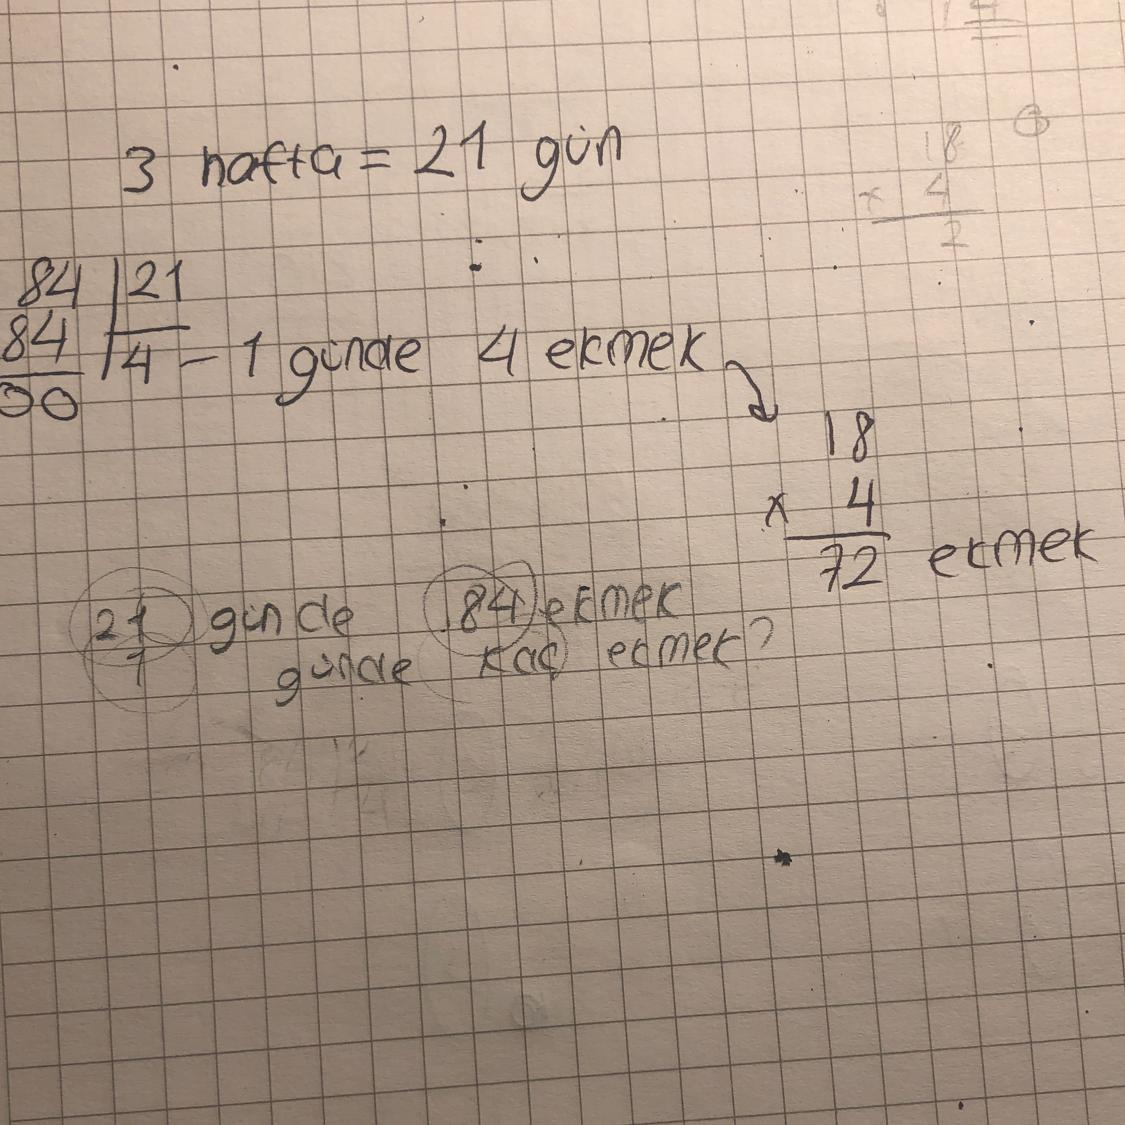 3 hafta = 21 gün
18
x 4
2
84 | 21
84 4 - 1 günde 4 ekmek
00
18
x 4
72 ekmek
21 günde 84 ekmek
1 günde kaç ekmek?